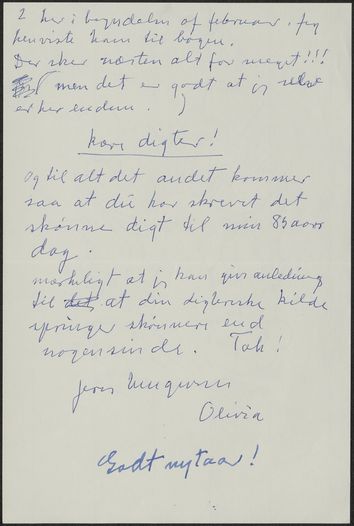 2 her i begyndelsn af februar. Jeg
henviste ham til bogen.
Der sker næsten alt for meget!!!
men det er godt at jeg selv
er her endnu.
kære digter!
og til alt det andet kommer
saa at du har skrevet det
skønne digt til min 85 aars
dag.
mærkeligt at jeg kan give anledning
til at din digteriske kilde
springer skønnere end
nogensinde. Tak!
Jens
Olivia
Godt nytaar!